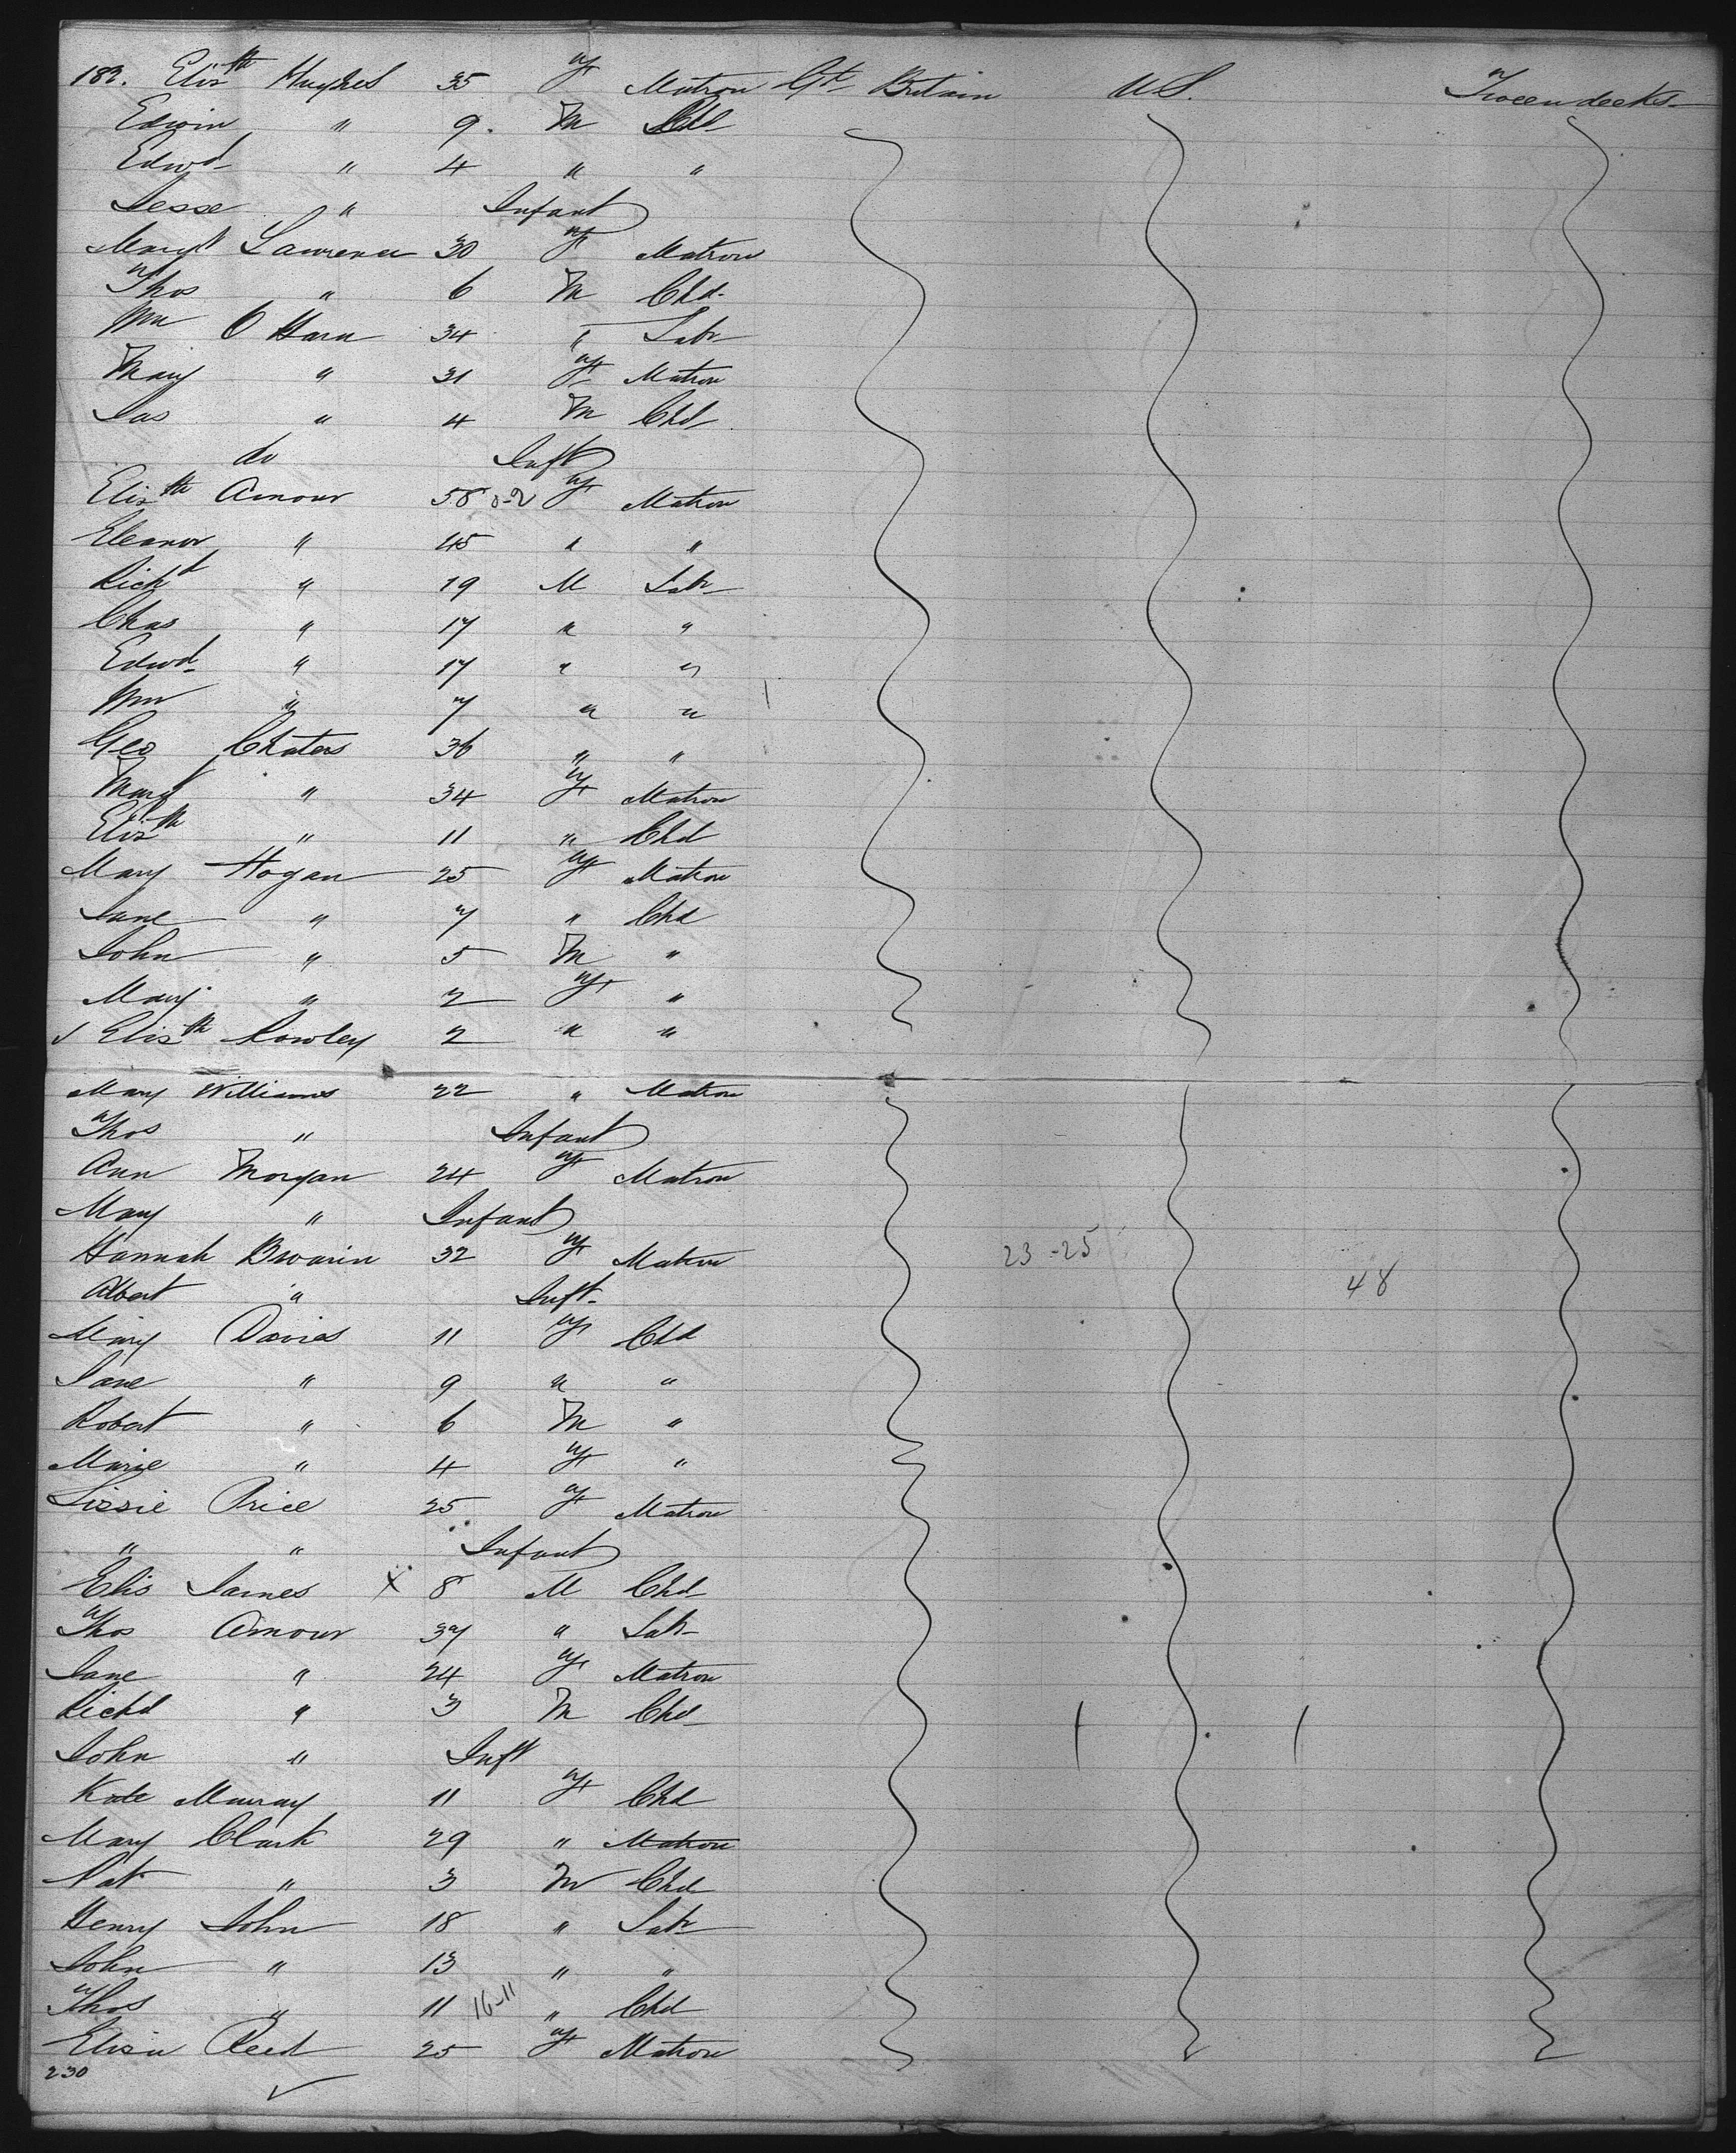 183. Elizth Hughes 35 f Matron Gt Britain U.S. Tween decks
Edwin " 9. M Chd
Edwd " 4 " "
Jesse " Infant
Margt Lawrence 30 f Matron
Thos " 6 M Chd.
Wm O Hara 34 " Labr
Mary " 31 f Matron
Jas " 4 M Chd
do Inft
Elizth Amour 58 f Matron
Eleanor " 45 " "
Richd " 19 M Labr
Chas " 17 " "
Edwd " 17 " "
Wm " 7 " "
Geo Chaters 36 " "
Margt " 34 f Matron
Elizth " 11 " Chd
Mary Hogan 25 f Matron
Jane " 7 " Chd
John " 5 M "
Mary " 2 f "
Elizth Rowley 2 " "
Mary Williams 22 " Matron
Thos " Infant
Ann Morgan 24 f Matron
Mary " Infant
Hannah 32 f Matron 23-25
Albert " Inft. 48
Mary Davies 11 f Chd
Jane " 9 " "
Robert " 6 M "
Marie " 4 f "
Lizzie Price 25 f Matron
" " Infant
Elis James X 8 M Chd
Thos Amour 37 " Labr
Jane " 24 f Matron
Richd " 3 M Chd
John " Inft
Kate Murray 11 f Chd
Mary Clark 29 " Matron
Pat " 3 M Chd
Henry John 18 " Labr
John " 13 " "
Thos " 11 16-11 " Chd
Eliza Reed 25 f Matron
230